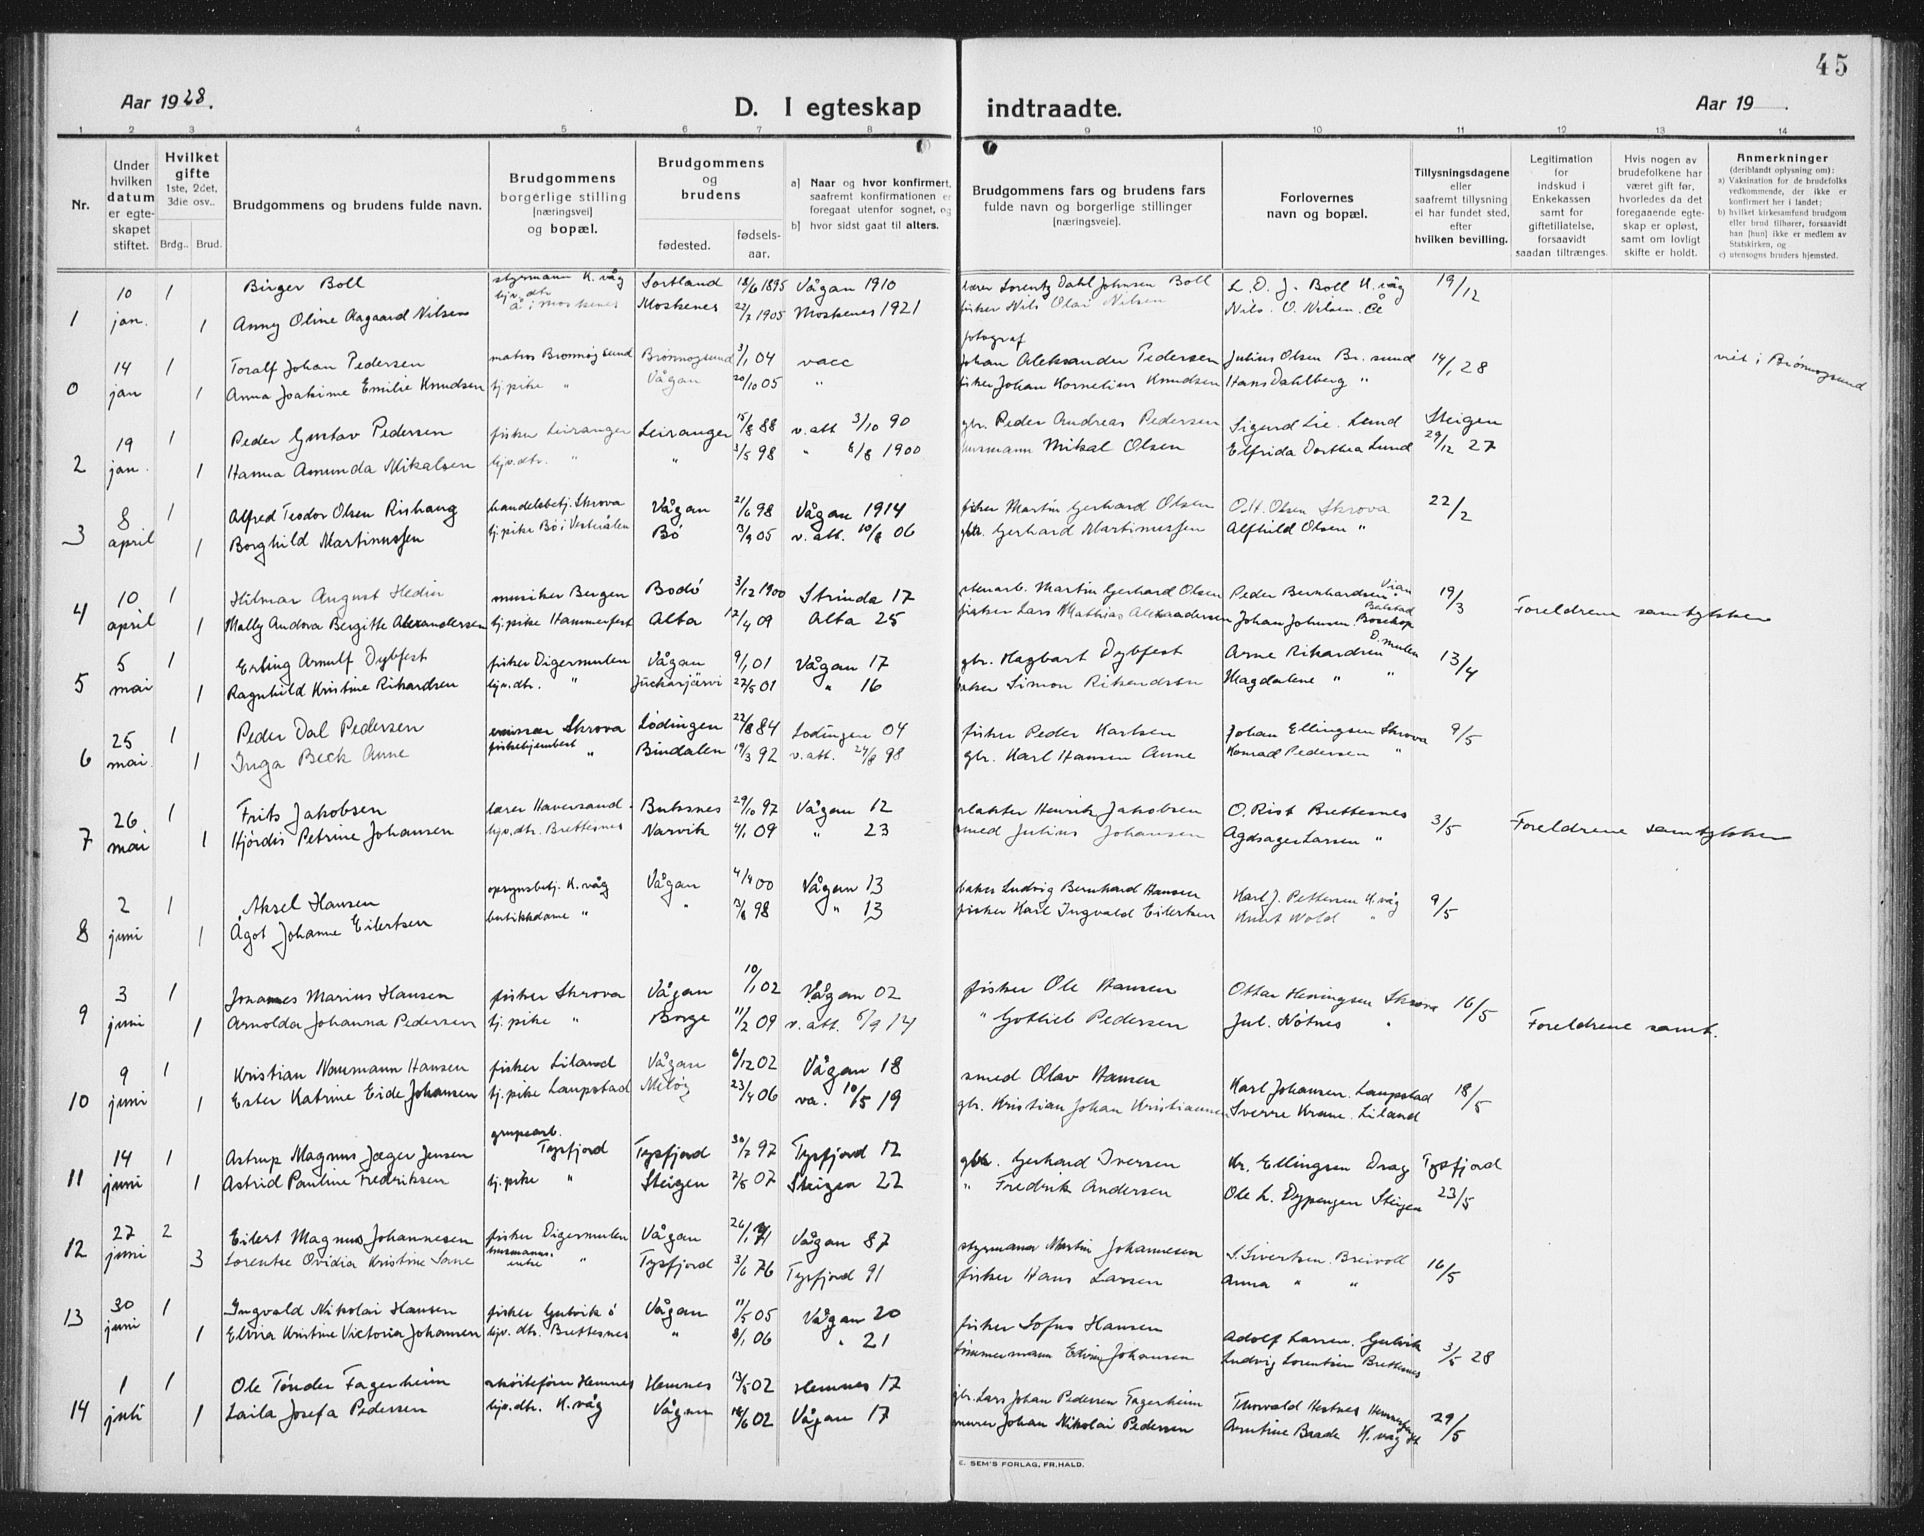 45
Aar 1928.
D. I egteskap indtraadte.
Aar 19 .
1 2 3 4 5 6 7 8 9 10 11 12 13 14
Nr.
Under hvilken datum er egteskapet stiftet.
Hvilket gifte 1ste, 2det, 3die osv..
Brdg.. Brud.
Brudgommens og brudens fulde navn.
Brudgommens borgerlige stilling [næringsvei] og bopæl.
Brudgommens og brudens
fødested. fødsels-aar.
a) Naar og hvor konfirmert, saafremt konfirmationen er foregaat utenfor sognet, og
b) hvor sidst gaat til alters.
Brudgommens fars og brudens fars fulde navn og borgerlige stillinger [næringsveie].
Forlovernes navn og bopæl.
Tillysningsdagene eller saafremt tillysning ei har fundet sted, efter hvilken bevilling.
Legitimation for indskud i Enkekassen samt for giftetillatelse, forsaavidt saadan tiltrænges.
Hvis nogen av brudefolkene har været gift før, hvorledes da det foregaaende egteskap er opløst, samt om lovligt skifte er holdt.
Anmerkninger (deriblandt oplysning om):
a) Vaksination for de brudefolks vedkommende, der ikke er konfirmert her i landet;
b) hvilket kirkesamfund brudgom eller brud tilhører, forsaavidt han [hun] ikke er medlem av Statskirken, og
c) utensogns bruders hjemsted.
10 1 Birger Boll styrmann K.våg Sortland 18/6 1895 Vågan 1910 lærer Lorentz Dahl Johnsen Boll L. D. J. Boll K.våg 19/12
1 jan. 1 Anny Oline Aagaard Nilsen hjv.dtr. Å i Moskenes Moskenes 22/7 1905 Moskenes 1921 fisker Nils Olai Nilsen Nils. O. Nilsen. Å
14 1 Toralf Johan Pedersen matros Brønnøysund Brønnøysund 3/1 04 vacc fotograf Johan Aleksander Pedersen Julius Olsen Br.sund 14/1 28 viet i Brønnøysund
0 jan 1 Anna Joakime Emilie Knudsen tj.pike " Vågan 20/10 05 " fisker Johan Kornelius Knudsen Hans Dahlberg "
19 1 Peder Gustav Pedersen fisker Leiranger Leiranger 15/8 88 v.att 3/10 90 gbr. Peder Andreas Pedersen Sigurd Lie. Lund Steigen
2 jan. 1 Hanna Amunda Mikalsen hjv.dtr. " " 3/5 98 " 6/8 1900 husmann Mikal Olsen Elfrida Dorthea Lund 29/12 27
8 1 Alfred Teodor Olsen Rishaug handelsbetj. Skrova Vågan 21/6 98 Vågan 1914 fisker Martin Gerhard Olsen O.H. Olsen Skrova 22/2
3 april 1 Borghild Martinussen tj.pike Bø i Vesterålen Bø 3/9 05 v.att. 10/8 06 gbr. Gerhard Martinussen Alfhild Olsen "
10 1 Hilmar August Hedin musiker Bergen Bodø 3/12 1900 Strinda 17 stenarb. Martin Gerhard Olsen Peder Bernhardsen 19/3 Foreldrene samtykker
4 april 1 Mally Andova Bergitte Alexandersen tj.pike Hammerfest Alta 12/4 09 Alta 25 fisker Lars Mathias Alexandersen Johan Johnsen. Bosekop
5 1 Erling Arnulf Dybfest fisker Digermulen Vågan 9/1 01 Vågan 17 gbr. Hagbart Dybfest Arne Rikardsen D.mulen 13/4
5 mai 1 Ragnhild Kristine Rikardsen hjv.dtr. " Juckasjärvi 27/5 01 " 16 fisker Simon Rikardsen Magdalene " "
25 1 Peder Dal Pedersen emissær Skrova Lødingen 22/8 84 Lødingen 04 fisker Peder Karlsen Johan Ellingsen Skrova 9/5
6 mai. 1 Inga Beck Aune " Bindalen 19/3 92 v.att. 24/8 98 gbr. Karl Hansen Aune Konrad Pedersen "
26 1 Frits Jakobsen lærer Haversand Buksnes 29/10 97 Vågan 12 slakter Henrik Jakobsen O. Rist Brettesnes 3/5 Foreldrene samtykker
7 mai 1 Hjørdis Petrine Johansen hjv.dtr. Brettesnes Narvik 4/1 09 " 23 smed Julius Johansen Larsen "
2 1 Aksel Hansen opsynsbetj. K.våg Vågan 4/4 00 Vågan 13 baker Ludvig Bernhard Hansen Karl J. Pettersen K.våg 9/5
8 juni 1 Ågot Johanne Eilertsen butikkdame " " 3/8 98 " 13 fisker Karl Ingvald Eilertsen Knut Wold "
3 1 Johannes Marius Hansen fisker Skrova Vågan 10/1 02 Vågan 02 fisker Ole Hansen Ottar Heningsen Skrova 16/5
9 juni 1 Arnolda Johanna Pedersen tj.pike " Borge 11/2 09 v.att. 6/9 14 " Gotlieb Pedersen Jul. Nøtnes " Foreldrene samt.
9 1 Kristian Naumann Hansen fisker Liland Vågan 6/12 02 Vågan 18 smed Olav Hansen Karl Johansen. Laupstad 18/5
10 juni 1 Ester Katrine Eide Johansen tj.pike Laupstad Meløy 23/4 06 va. 10/5 19 gbr. Kristian Johan Kristiansen Sverre Krane. Liland
14 1 Astrup Magnus Jæger Jensen grupearb. Tysfjord Tysfjord 30/7 97 Tysfjord 12 gbr. Gerhard Iversen Kr. Ellingsen Drag Tysfjord
11 juni 1 Astrid Pauline Fredriksen tj.pike " Steigen 2/5 07 Steigen 22 " Fredrik Andersen Ole L. Dypengen Steigen 23/5
27 2 Eilert Magnus Johannesen fisker Digermulen Vågan 26/1 71 Vågan 87 styrmann Martin Johannesen S. Sivertsen. Breivoll 16/5
12 juni 3 Lorentse Ovidia Kristine Sane husmanns enke " Tysfjord 3/6 76 Tysfjord 91 fisker Hans Larsen Anna " "
30 1 Ingvald Nikolai Hansen fisker Gulvik Vågan 11/5 05 Vågan 20 fisker Sofus Hansen Adolf Larsen. Gulvik 3/5 28
13 juni 1 Elvia Kristine Victoria Johansen hjv.dtr. Brettesnes " 8/1 06 " 21 tømmermann Edvin Johansen Ludvig Lorentsen Brettesnes
1 1 Ole Tønder Fagerheim skøitefører Hemnes Hemnes 13/5 02 Hemnes 17 gbr. Lars Johan Pedersen Fagerheim Thorvald Hestnes 29/5
14 juli 1 Laila Josefa Pedersen hjv.dtr. K.våg Vågan 16/6 02 Vågan 17 murer Johan Nikolai Pedersen Arntine Baade K.våg
E. SEM'S FORLAG, FR.HALD.